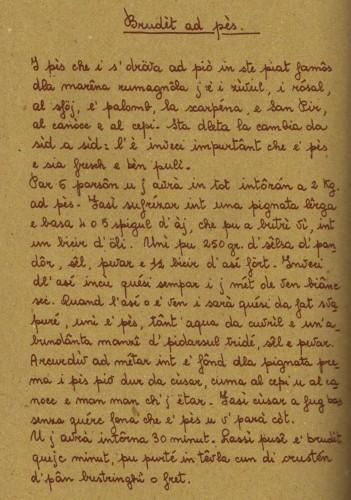 Brudèt ad pès.
I pès che i s'drôva ad piò in ste piat famôs
dla marêna rumagnôla j è i zìvul, i rósal,
al sfòj, e' palomb, la scarpèna, e San Pir,
al canòce e al cepi. Sta dleta la cambia da
sid a sid: l'è inveci impurtânt che e' pès
e sia fresch e bèn pulì.
Par 6 parsôn u j avrà in tot intôrân a 2 Kg.
ad pès. Fasì sufrizar int una pignata lêrga
e basa 4 o 5 spigul d'àj, che pu a butrì vì, int
un bicir d'òli. Unì pu 250 gr. d'sêlsa d'pan=
dôr, sêl, pevar e 1/2 bicir d'así fôrt. Inveci
dl'así incu quési sempar i j mét de ven biânc
sec. Quand l'así o e' ven i sarà quési da fat sva=
puré, unì e' pès, tânt'aqua da cuvrìl e un'a=
bundânta manvî d'pidarsul tridé, sêl e pevar.
Arcurdìv ad métar int e' fônd dla pignata pre=
ma i pès piò dur da cùsar, cuma al cepi u al ca=
noce e man man chi j étar. Fasì cùsar a fug bas
senza quérc fena che e' pès u v' parà còt.
U j avrà intôrna 30 minut. Lassì pusê e' brudèt
quejc minut, pu purté in têvla cun di crustén
d'pân brustringhì o fret.